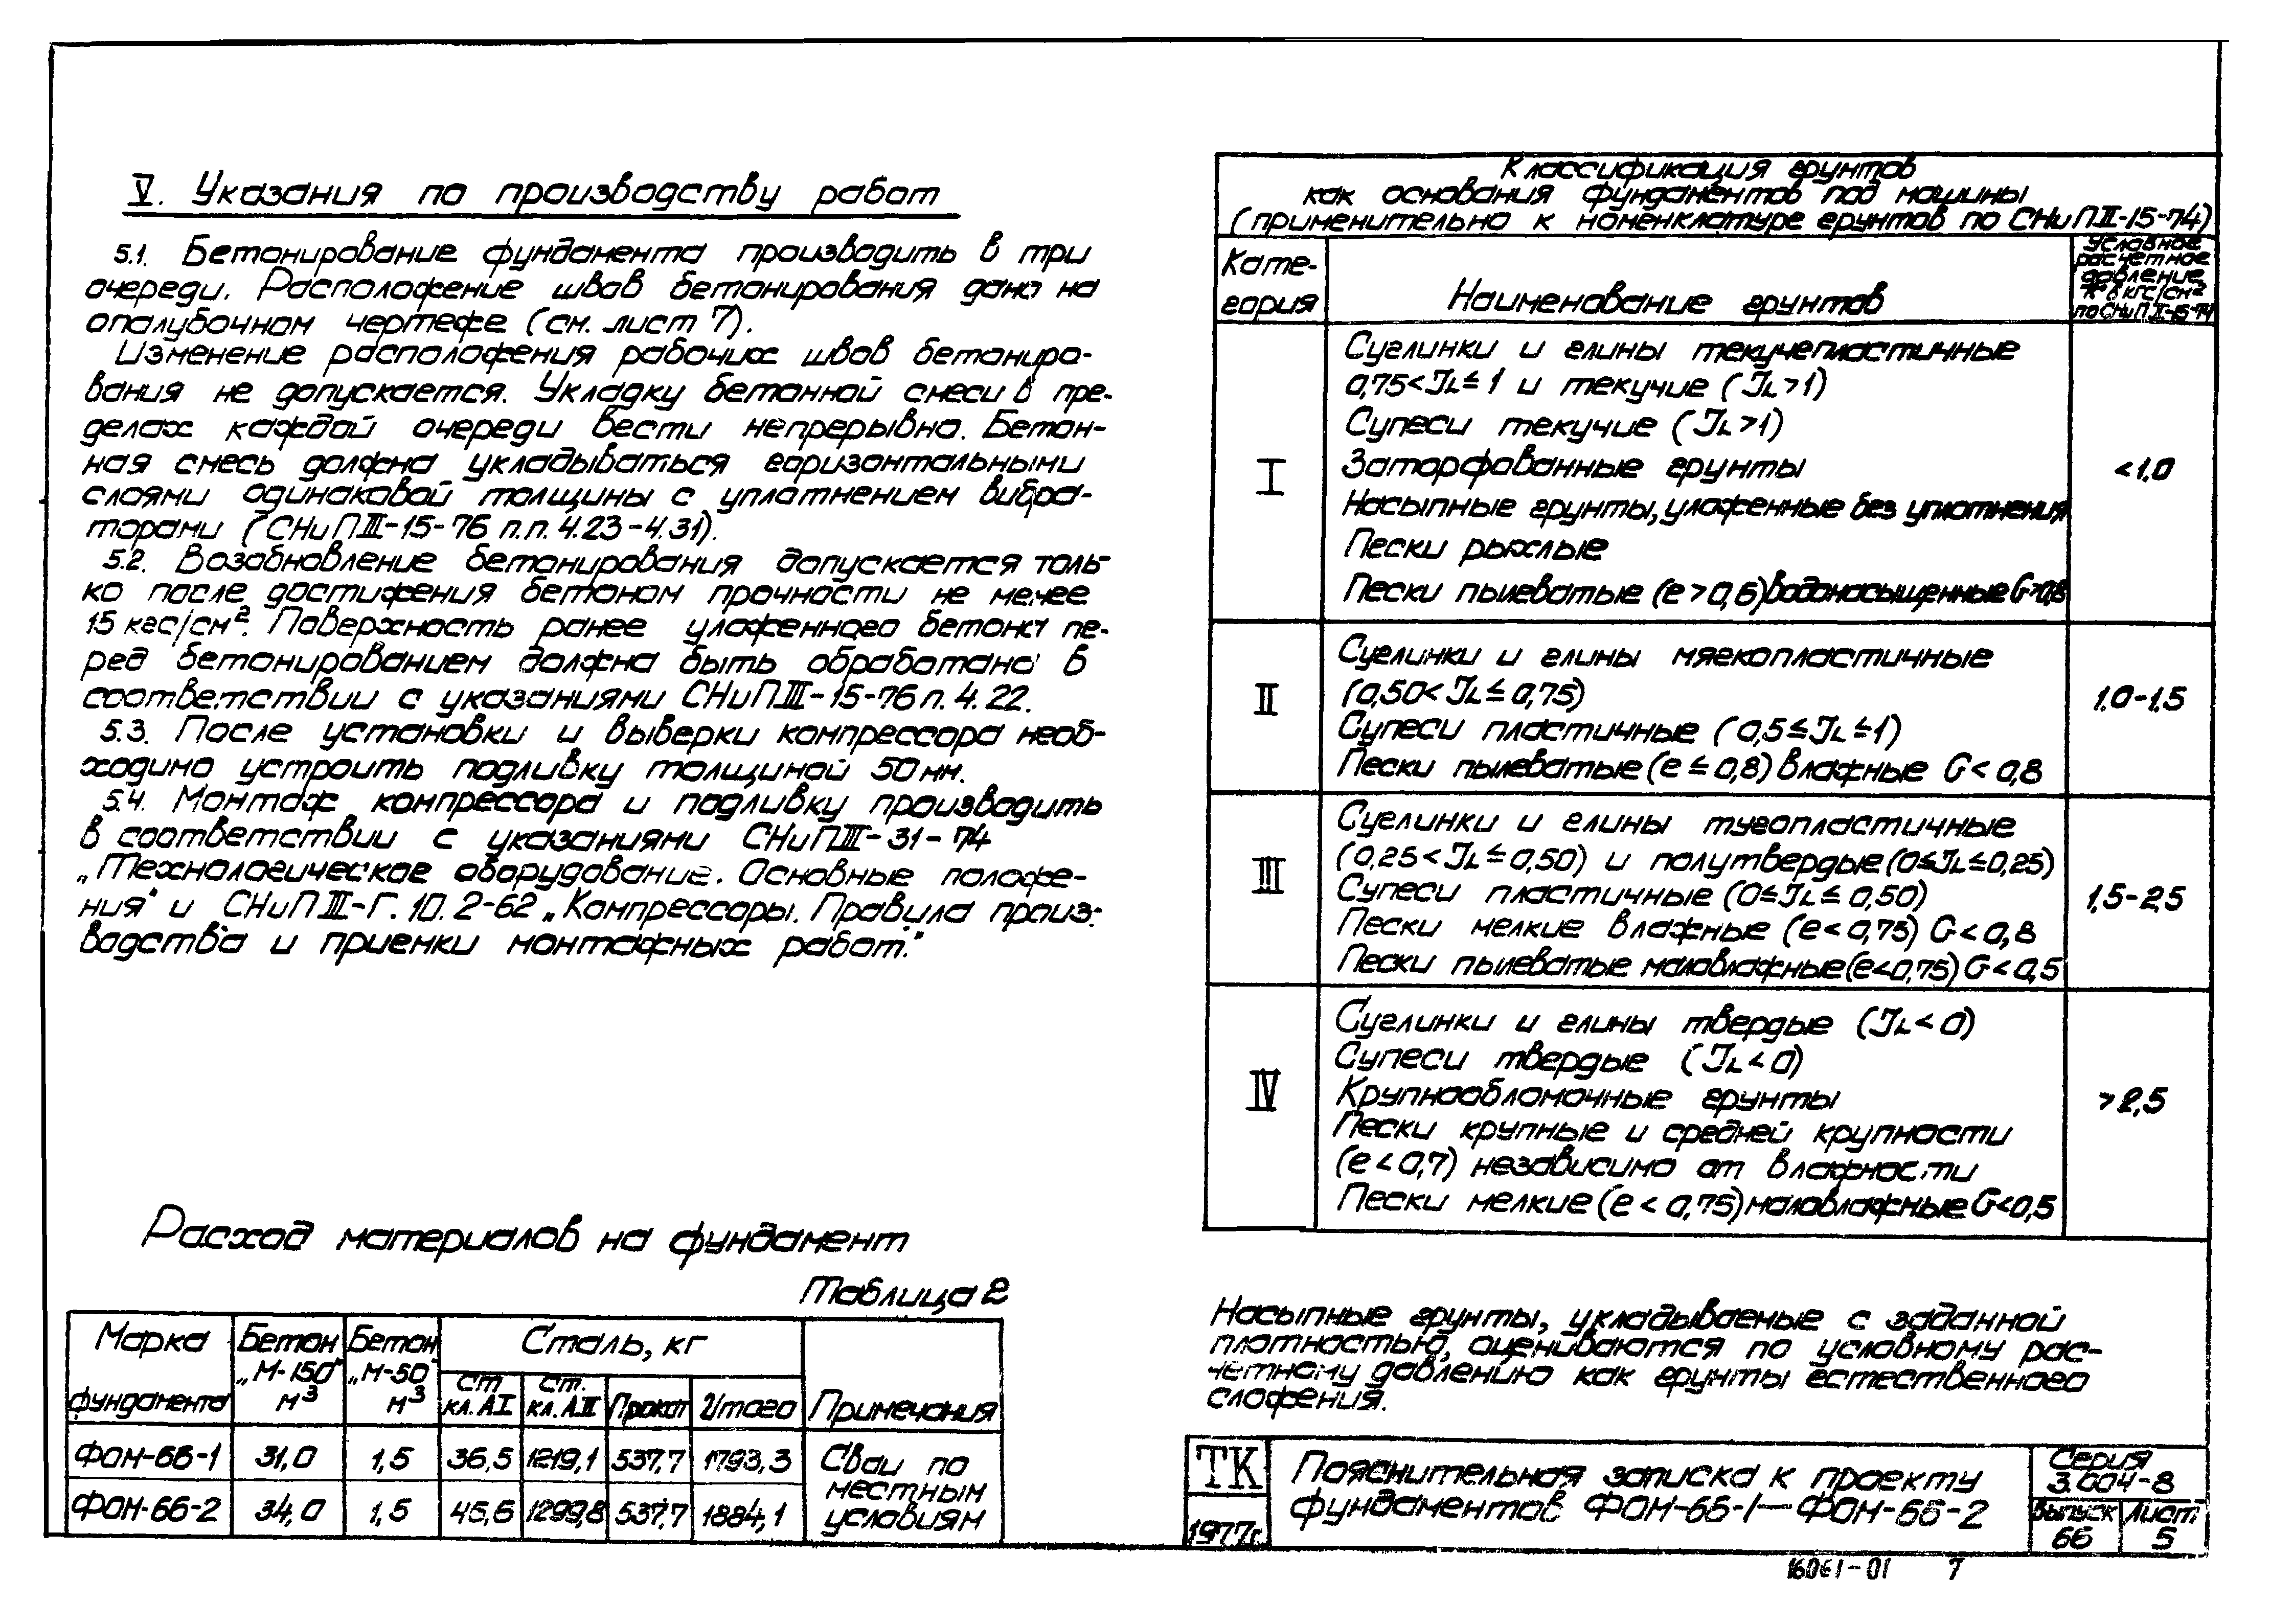 V. Указания по производству работ
5.1. Бетонирование фундамента производить в три
очереди. Расположение швов бетонирования дано на
опалубочном чертеже (см. лист 7).
Изменение расположения рабочих швов бетониро-
вания не допускается. Укладку бетонной смеси в пре-
делах каждой очереди вести непрерывно. Бетон-
ная смесь должна укладываться горизонтальными
слоями одинаковой толщины с уплотнением вибра-
торами (СНиП III-15-76 п.п. 4.23-4.31).
5.2. Возобновление бетонирования допускается толь-
ко после достижения бетоном прочности не менее
15 кгс/см². Поверхность ранее уложенного бетона пе-
ред бетонированием должна быть обработана в
соответствии с указаниями СНиП III-15-76 п. 4.22.
5.3. После установки и выверки компрессора необ-
ходимо устроить подливку толщиной 50мм.
5.4. Монтаж компрессора и подливку производить
в соответствии с указаниями СНиП III-31-74
„Технологическое оборудование. Основные положе-
ния" и СНиП III-Г. 10. 2-62 „Компрессоры. Правила произ-
водства и приемки монтажных работ."
Расход материалов на фундамент
Таблица 2
Марка фундамента Бетон „М-150" м³ Бетон „М-50" м³ Сталь, кг Примечания
Ст кл. АI Ст. кл. АII Прокат Итого
ФОМ-66-1 31,0 1,5 36,5 1219,1 537,7 1793,3 Сваи по
местным
ФОМ-66-2 34,0 1,5 45,6 1299,8 537,7 1884,1 условиям
Классификация грунтов
как основания фундаментов под машины
(применительно к номенклатуре грунтов по СНиП II-15-74)
Кате-
гория
Наименование грунтов
Условное
расчетное
давление
R° в кгс/см²
по СНиП II-15-74
Суглинки и глины текучепластичные
0,75<JL≤1 и текучие (JL>1)
Супеси текучие (JL>1)
I Заторфованные грунты <1,0
Насыпные грунты, уложенные без уплотнения
Пески рыхлые
Пески пылеватые (e>0,6) водонасыщенные G>0,8
Суглинки и глины мягкопластичные
II (0,50<JL≤0,75) 1,0-1,5
Супеси пластичные (0,5≤JL≤1)
Пески пылеватые (e≤0,8) влажные G<0,8
Суглинки и глины тугопластичные
(0,25<JL≤0,50) и полутвердые (0≤JL≤0,25)
III Супеси пластичные (0≤JL≤0,50) 1,5-2,5
Пески мелкие влажные (e<0,75) G<0,8
Пески пылеватые маловлажные (e<0,75) G<0,5
Суглинки и глины твердые (JL<0)
Супеси твердые (JL<0)
IV Крупнообломочные грунты >2,5
Пески крупные и средней крупности
(e<0,7) независимо от влажности
Пески мелкие (e<0,75) маловлажные G<0,5
Насыпные грунты, укладываемые с заданной
плотностью, оцениваются по условному рас-
четному давлению как грунты естественного
сложения.
ТК
1977г.
Пояснительная записка к проекту
фундаментов ФОМ-66-1—ФОМ-66-2
Серия
3.004-8
Выпуск 66
Лист 5
16061-01 7